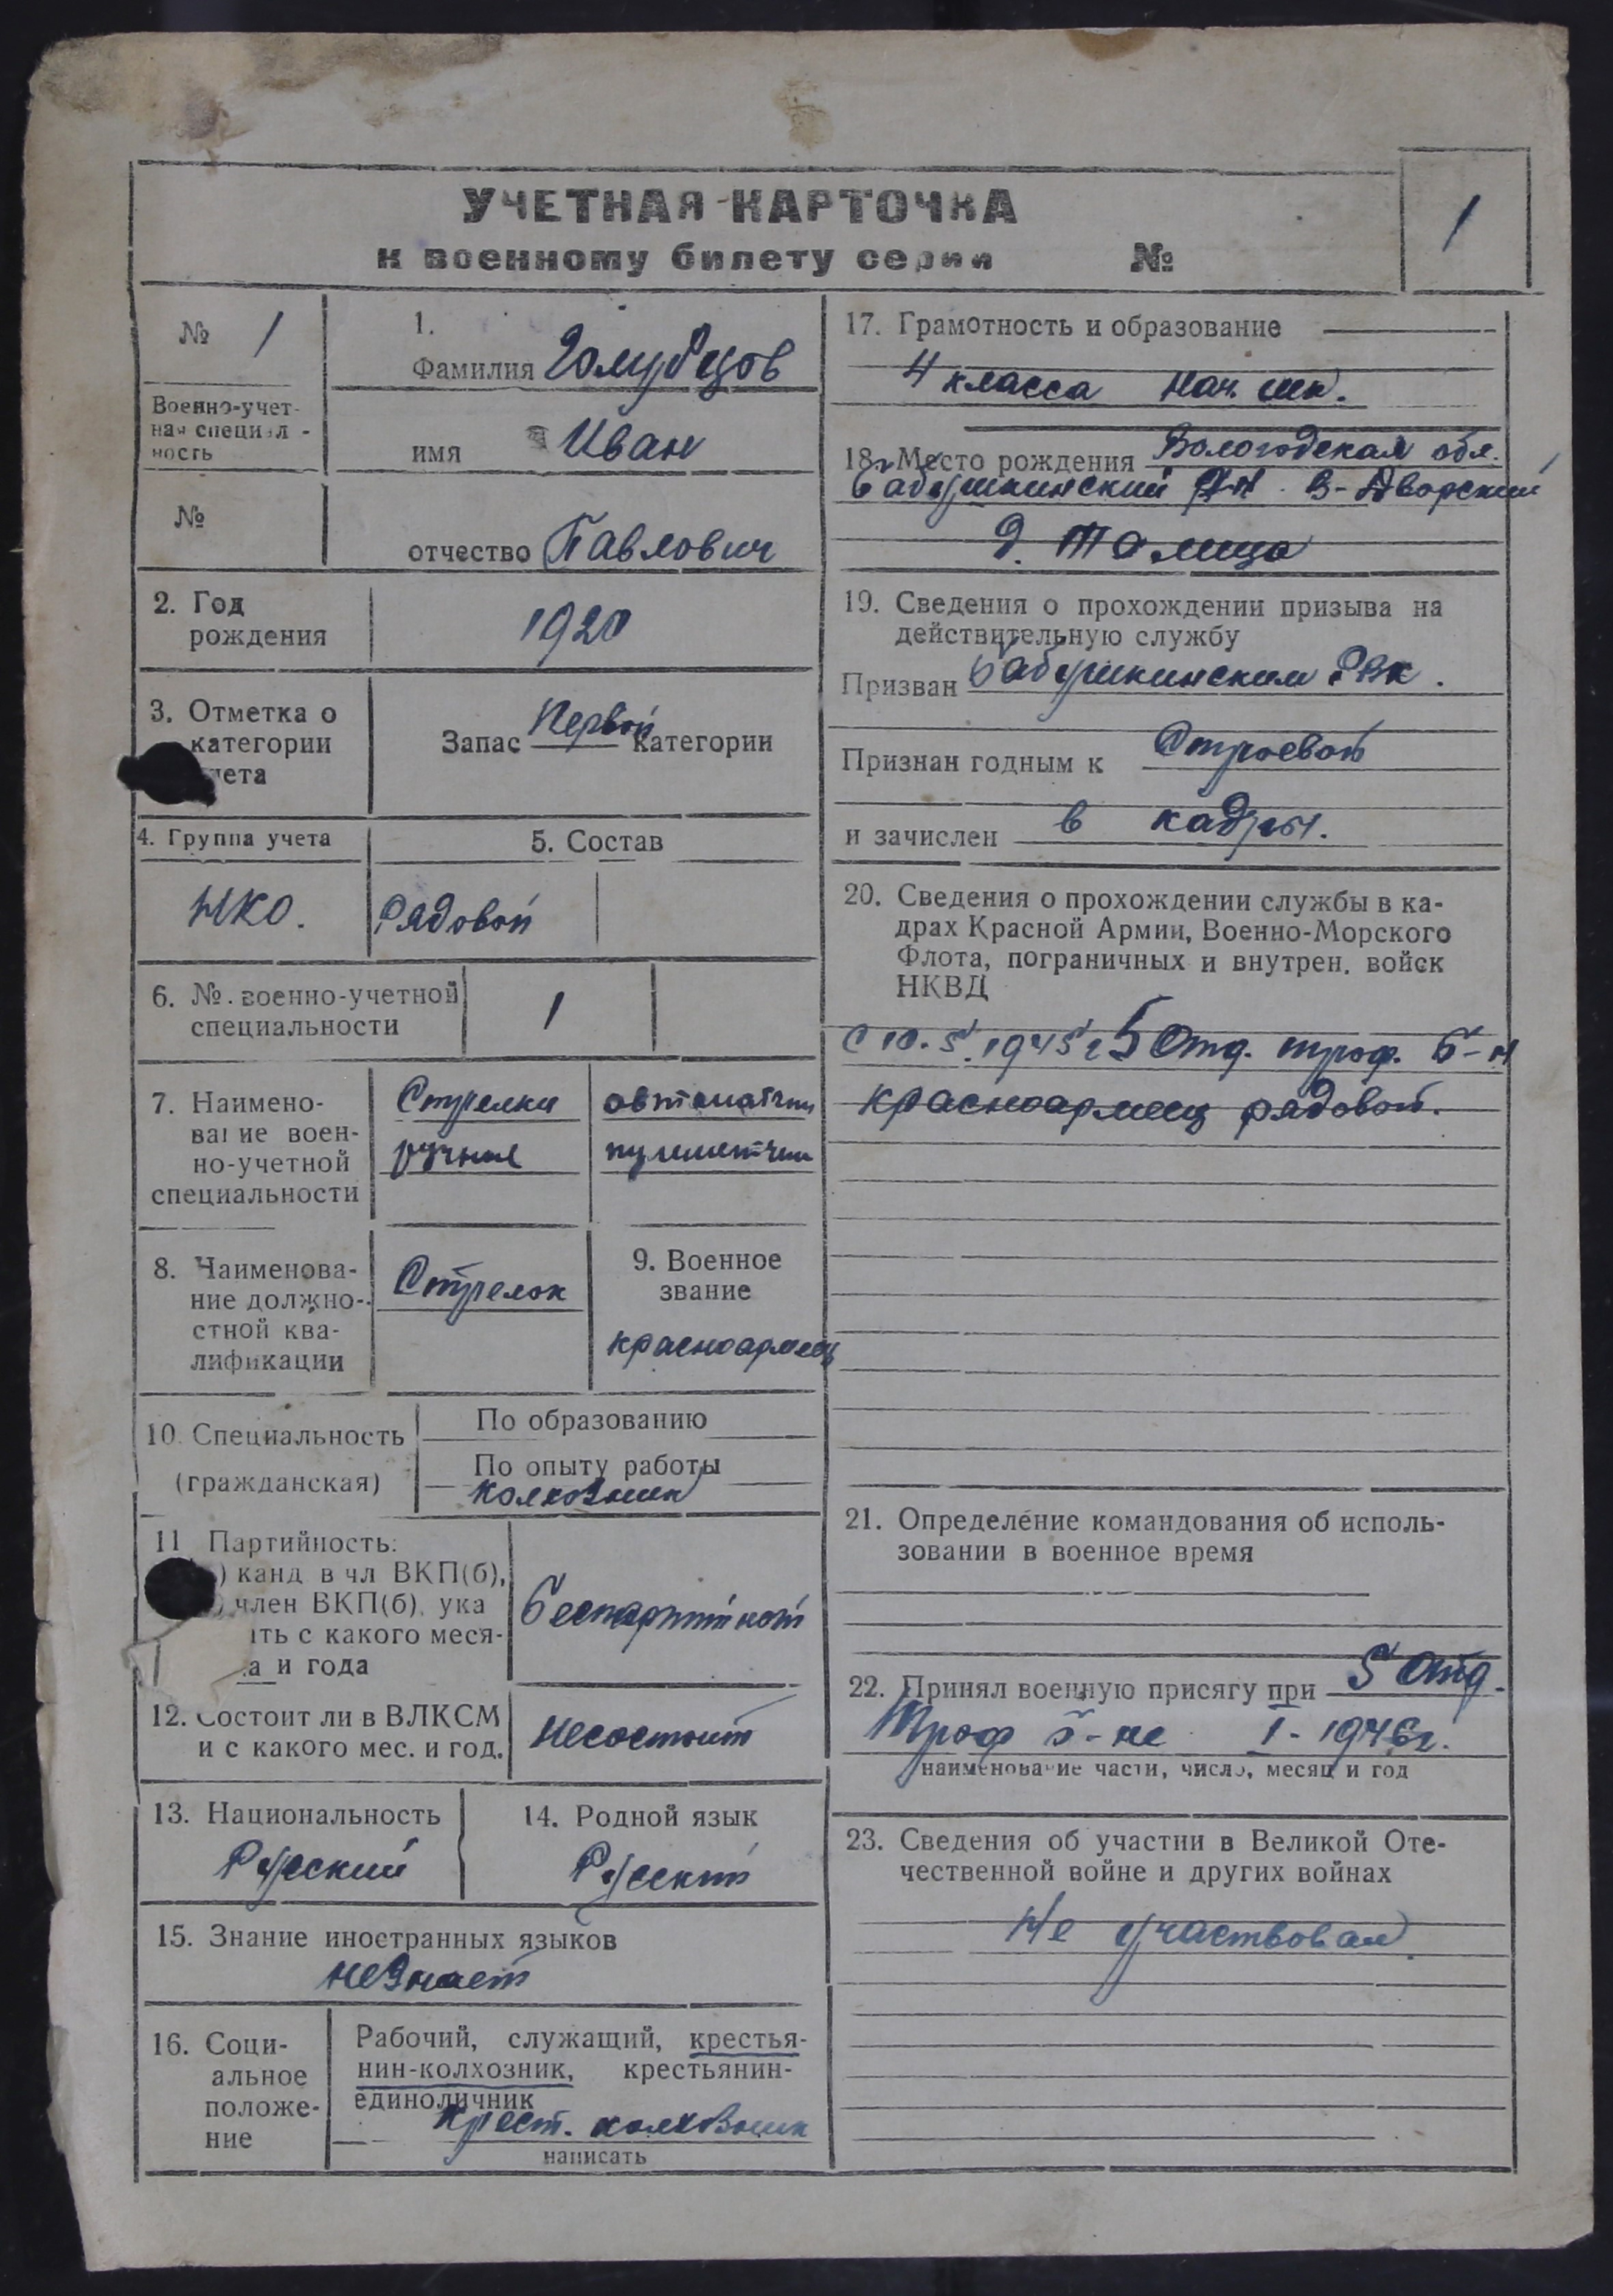 УЧЕТНАЯ КАРТОЧКА
к военному билету серии №
1
№ 1
Военно-учет-
ная специал -
ность
№
1.
Фамилия Голубцов
имя Иван
отчество Павлович
2. Год
рождения
1920
3. Отметка о
категории
чета
Запас Первой категории
4. Группа учета
НКО.
5. Состав
Рядовой
6. № военно-учетной
специальности
1
7. Наимено-
вание воен-
но-учетной
специальности
Стрелки автоматчики
ручные пулеметчики
8. Наименова-
ние должно-
стной ква-
лификации
Стрелок
9. Военное
звание
красноармеец
10. Специальность
(гражданская)
По образованию
По опыту работы
колхозник
11 Партийность:
) канд в чл ВКП(б),
) член ВКП(б), ука
ать с какого меся-
а и года
беспартийной
12. Состоит ли в ВЛКСМ
и с какого мес. и год.
несостоит
13. Национальность
Русский
14. Родной язык
Русский
15. Знание иностранных языков
незнает
16. Соци-
альное
положе-
ние
Рабочий, служащий, крестья-
нин-колхозник, крестьянин-
единоличник
Крест. колхозник
написать
17. Грамотность и образование
4 класса нач. шк.
18. Место рождения Вологодская обл.
Бабушкинский р-н В-Дворский
д. Талица
19. Сведения о прохождении призыва на
действительную службу
Призван Бабушкинским РВК.
Признан годным к Строевой
и зачислен в кадры.
20. Сведения о прохождении службы в ка-
драх Красной Армии, Военно-Морского
Флота, пограничных и внутрен. войск
НКВД
С 10.5.1945г 5 Отд. троф. б-н
красноармеец рядовой.
21. Определение командования об исполь-
зовании в военное время
22. Принял военную присягу при 5 Отд.
Троф б-не I-1946г.
наименование части, число, месяц и год
23. Сведения об участии в Великой Оте-
чественной войне и других войнах
Не участвовал.